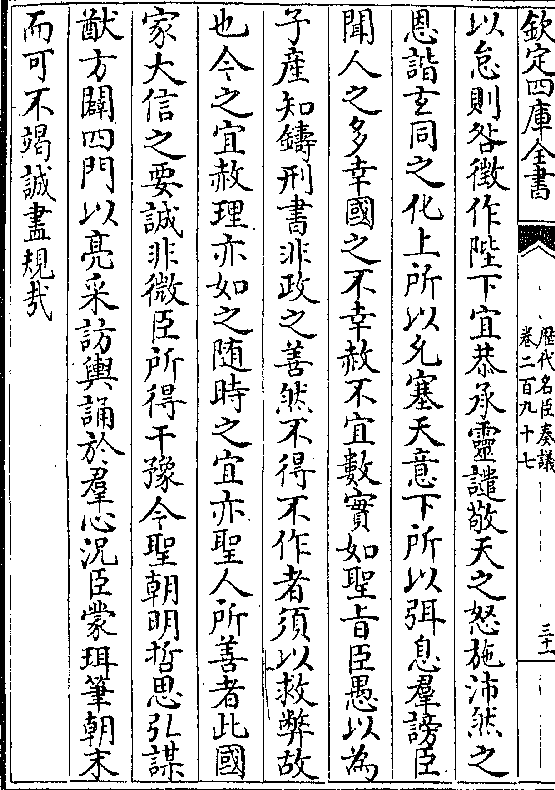 欽定四庫全書
歷代名臣奏議
卷二百九十七
三十一
以怠則咎徵作陛下宜恭承靈譴敬天之怒施沛然之
恩諧玄同之化上所以允塞天意下所以弭息羣謗臣
聞人之多幸國之不幸赦不宜數實如聖旨臣愚以為
子産知鑄刑書非政之善然不得不作者須以救弊故
也今之宜赦理亦如之随時之宜亦聖人所善者此國
家大信之要誠非微臣所得干豫今聖朝明哲思弘謀
猷方闢四門以亮采訪輿誦於羣心況臣蒙珥筆朝末
而可不竭誠盡規㢤